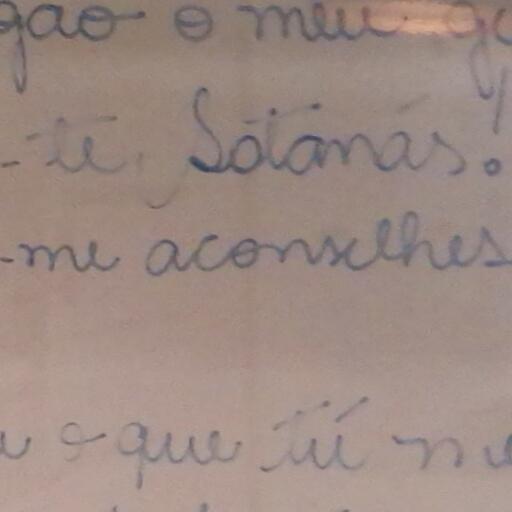 gão o meu g
-te, Satanás.
-me aconselhes
o que tú me